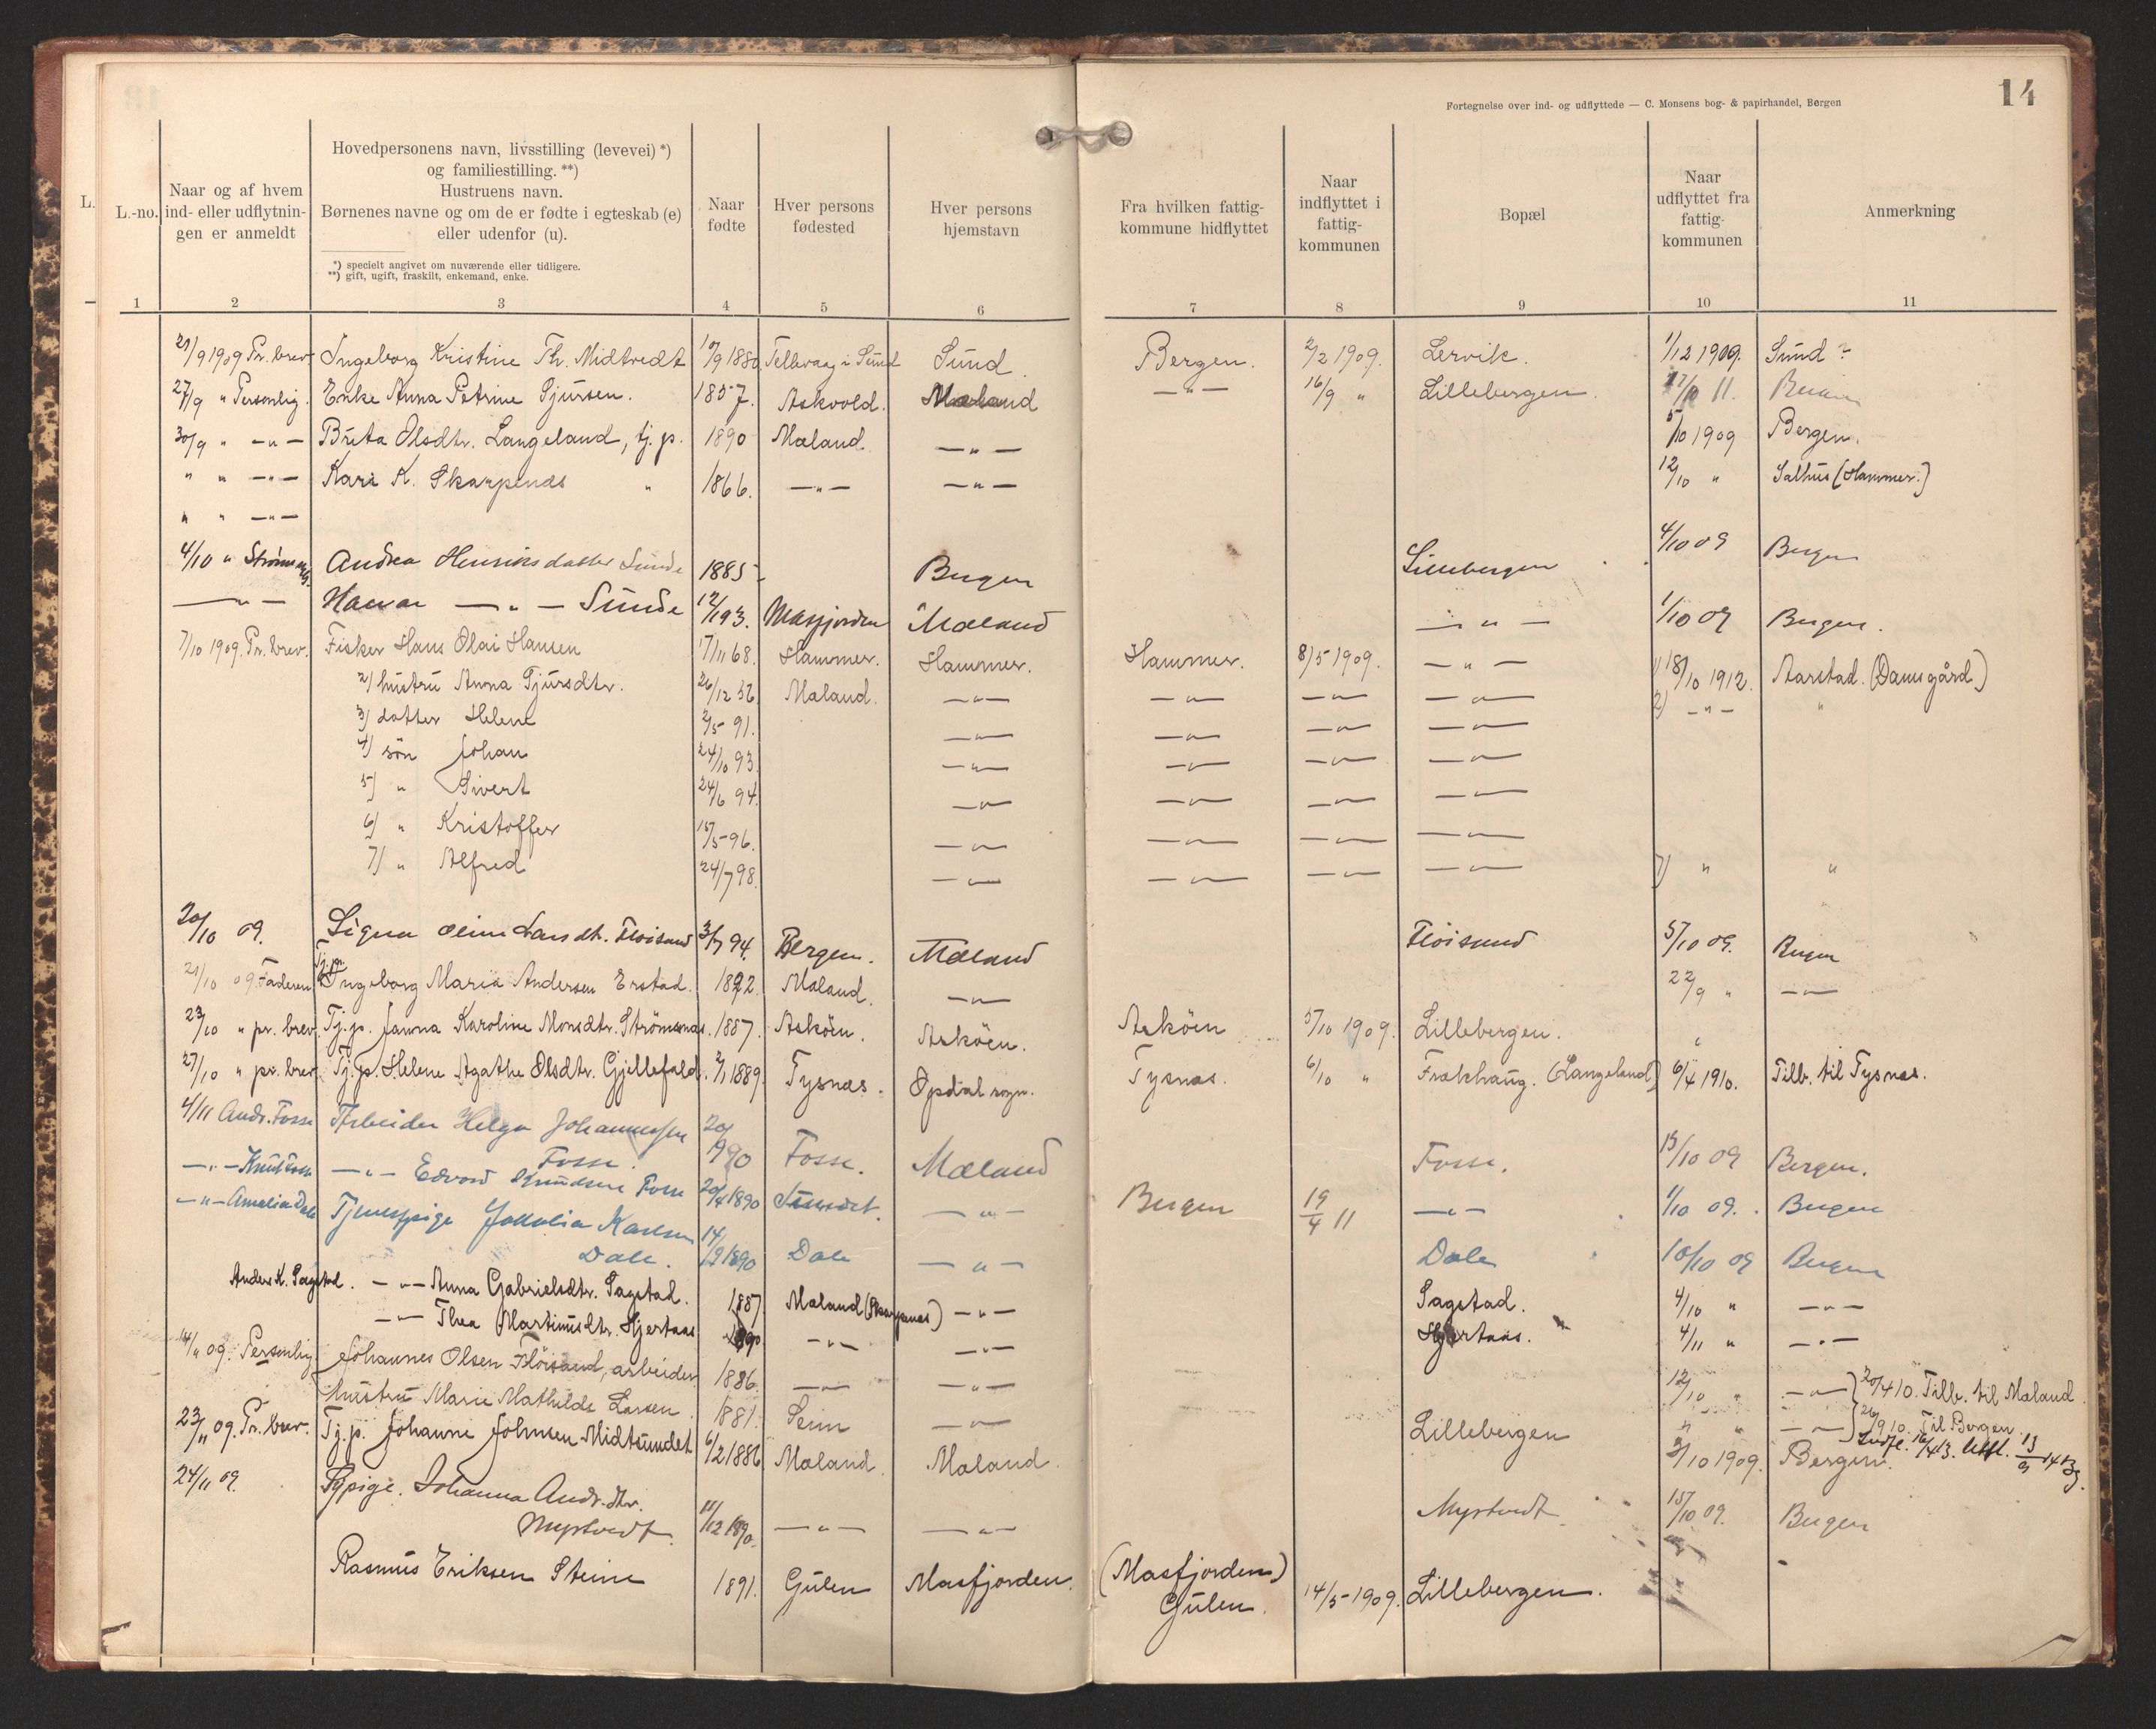 14
Fortegnelse over ind- og udflyttede — C. Monsens bog- & papirhandel, Bergen
L.
L.-no.
Naar og af hvem
ind- eller udflytnin-
gen er anmeldt
Hovedpersonens navn, livsstilling (levevei) *)
og familiestilling. **)
Hustruens navn.
Børnenes navne og om de er fødte i egteskab (e)
eller udenfor (u).
*) specielt angivet om nuværende eller tidligere.
**) gift, ugift, fraskilt, enkemand, enke.
Naar
fødte
Hver persons
fødested
Hver persons
hjemstavn
Fra hvilken fattig-
kommune hidflyttet
Naar
indflyttet i
fattig-
kommunen
Bopæl
Naar
udflyttet fra
fattig-
kommunen
Anmerkning
1 2 3 4 5 6 7 8 9 10 11
21/9 1909 Pr. brev Ingeborg Kristine Th. Midtvedt 10/9 1880 Tellevaag i Sund Sund. Bergen. 2/2 1909. Lervik. 1/12 1909. Sund ?
27/9 " Personlig. Enke Anna Petrine Gjursen. 1857. Askvold. Mæland —"— 16/9 " Lillebergen. 17/10 11. Bergen
30/9 " —"— Brita Olsdtr. Langeland, tj. p. 1890 Mæland. —"— 5/10 1909 Bergen.
" " —"— Kari K. Skarpenæs " 1866. —"— —"— 12/10 " Salhus (Hammer.)
" " —"—
4/10 " Andrea Henriksdatter Sunde 1885 Bergen Lillebergen 4/10 09 Bergen
—"— —"— Sunde 12/1 93. Masfjorden Mæland —"— 1/10 09 Bergen.
7/10 1909. Pr. brev. Fisker Hans Olai Hansen 17/11 68. Hammer. Hammer. Hammer. 8/5 1909. —"— 1) 18/10 1912. Aarstad. (Damsgård)
2) hustru Anna Gjursdtr. 26/12 56 Mæland. —"— —"— —"— —"— 2) —"— "
3) datter Helene 2/5 91. —"— —"— —"— —"—
4) sön Johan 24/10 93. —"— —"— —"— —"—
5) " Sivert 24/6 94. —"— —"— —"— —"—
6) " Kristoffer 15/5 96. —"— —"— —"— —"—
7) " Alfred 24/7 98. —"— —"— —"— —"— 7) " "
20/10 09. Signa Oline Larsdt. Flöisand 3/7 94. Bergen. Mæland Flöisund 5/10 09. Bergen
21/10 09. Faderen Tj.p. Ingeborg Maria Andersen Erstad. 1892. Mæland. —"— 22/9 " —"—
23/10 " pr. brev. Tj.p. Janna Karoline Monsdtr. Strömsnæs. 1887. Asköen. Asköen. Asköen 5/10 1909. Lillebergen. "
27/10 " pr. brev Tj.p. Helene Agathe Olsdtr. Gjellefald. 2/1 1889. Tysnæs. Opdal sogn. Tysnæs. 6/10 " (Langeland) 6/4 1910. Tilb. til Tysnæs.
4/11 Andr. Fosse Arbeider Helge Johannessen
Fosse. 20/ 90 Fosse. Mæland Fosse. 15/10 09 Bergen.
—"— Knut Fosse —"— Edvard Knudsen Fosse 20/4 1890 —"— Bergen 19/4 11 —"— 1/10 09. Bergen
—"— Amalia Dale Tjenestpige Karlsen
Dale. 14/9 1890 Dale —"— Dale 10/10 09 Bergen
Anders K. Sagstad. —"— Anna Gabrielsdtr. Sagstad. 1887 Mæland (Skarpenæs) —"— Sagstad. 4/10 " —"—
—"— Thea Martinusdtr. Hjertaas 1890 —"— —"— Hjertaas. 4/11 " —"—
14/11 09. Personlig Johannes Olsen Flöisand, arbeider 1886. —"— —"— 12/10 " —"— } 20/4 10. Tilb. til Mæland.
Hustru Marie Mathilde Larsen. 1881. Seim —"— " " —"— } 26/9 10. Til Bergen.
23/11 09. Pr. brev. Tj.p. Johanne Johnsen Midtsundet 6/2 1886 Mæland. Mæland. Lillebergen 2/10 1909. Bergen. Indfl. 16/4 13. Utfl.
24/11 09. Tj.pige. Johanna Andr.dtr.
Myrtvedt. 11/12 1890. —"— —"— Myrtvedt 15/10 09. Bergen
Rasmus Eriksen Steine 1891. Gulen Masfjorden. (Masfjorden)
Gulen. 14/5 1909. Lillebergen.